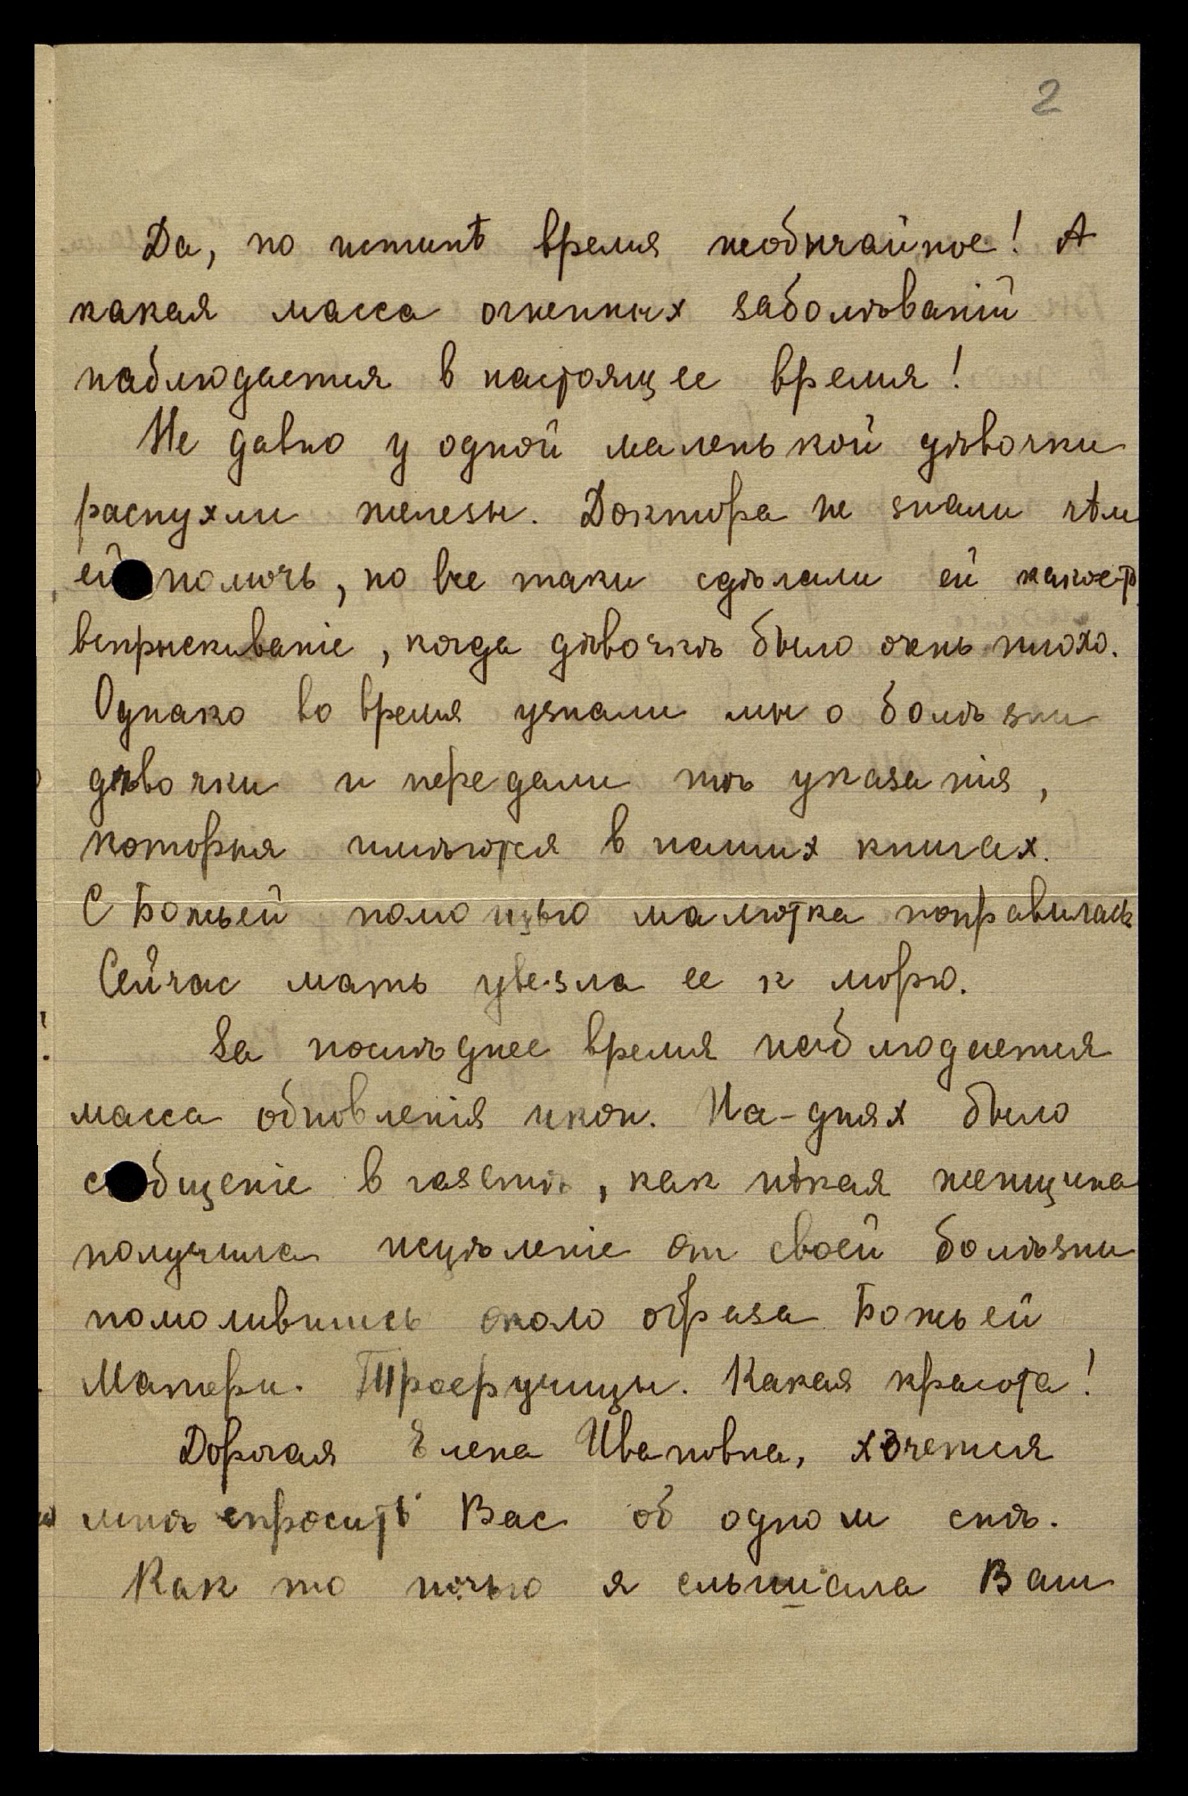 2
Да, по истинѣ время необычайное! А
какая масса огненных заболѣваній
наблюдается в настоящее время!
Не давно у одной маленькой дѣвочки
распухли железы. Доктора не знали чѣм
ей помочь, но все таки сдѣлали ей какое-то
вспрыскиваніе, когда дѣвочкѣ было очень плохо.
Однако во время узнали мы о болѣзни
дѣвочки и передали тѣ указанія,
которыя имѣются в наших книгах.
С Божьей помощью малютка поправилась
Сейчас мать увезла ее к морю.
За послѣднее время наблюдается
масса обновленія икон. На-днях было
сообщеніе в газетѣ, как нѣкая женщина
получила исцѣленіе от своей болѣзни
помолившись около образа Божьей
Матери. Троеручицы. Какая красота!
Дорогая Елена Ивановна, хочется
мнѣ спросить Вас об одном снѣ.
Как то ночью я слышала Ваш